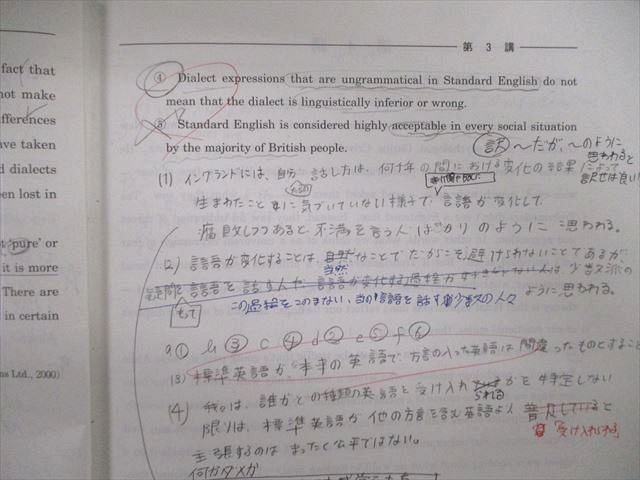 第 3 講
fact that
not make
fferences
ve taken
d dialects
een lost in
'pure' or
it is more
There are
in certain
ns Ltd., 2000)
④ Dialect expressions that are ungrammatical in Standard English do not
mean that the dialect is linguistically inferior or wrong.
⑤ Standard English is considered highly acceptable in every social situation
by the majority of British people.
訳 〜だが、〜のように
思われると
訳せば良い!
(1) イングランドには、自分 話し方は、何十年の間における変化の結果
生まれたこと に気づいていない様子で 言語が変化して
腐敗しつつあると不満を言う人ばかりのように 思われる。
(2) 言語が変化することは、自然なことでだがこそ避けられないことであるが、
当然
疑問 言語を話す人や 言語が変化する過程がすきでない人は、少数派の
ように思われる。
もて
この過程をこのまない、当の言語を話す少数の人々
a① b③ c④ d② e⑤ f⑥
(3) 標準英語が 本来の英語で、方言の入った英語は間違ったものとすること
(4) 我々は、誰がどの種類の英語を受け入れ られるかを特定しない
限りは、標準英語が他の方言を含む英語より 普及していると
「受け入れられる」
主張するのは まったく公平ではない。
何がダメか